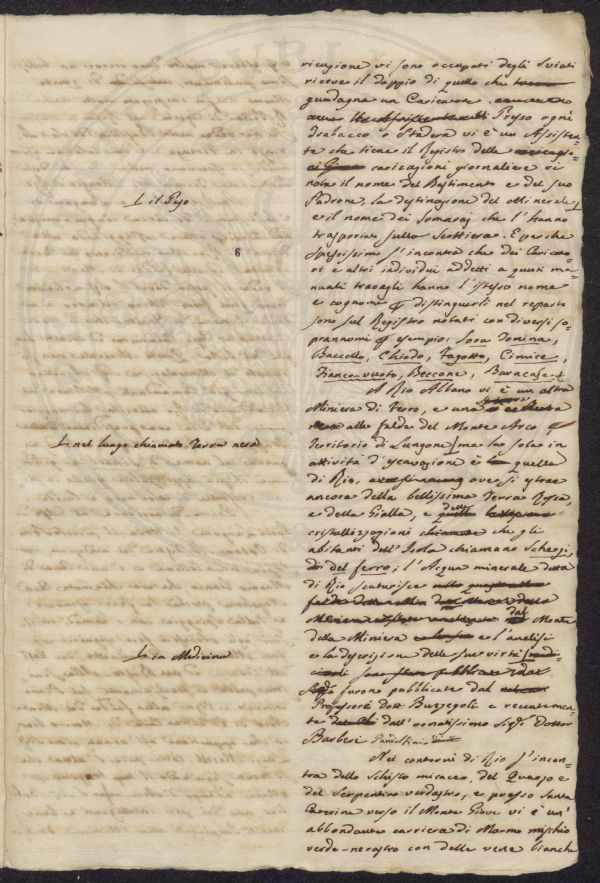 ricazione vi sono occupati degli Sviati
riceve il doppio di quello che
guadagna un Caricatore.
Presso ogni
Sbracco o Stadera vi è un Assisten-
te che tiene il Registro delle
caricazioni giornaliere vi
nota il nome del Bastimento e del suo
Padrone, la destinazione del Minerale
L il Peso
e il nome dei Somaraj che l'hanno
trasportato sullo Scottiera. E perche
spessissimo s'incontra che dei Caricato-
6
ri e altri individui addetti a questi ma-
nuali travagli hanno l'istesso nome
e cognome p distinguerli nel reparto
sono sul Registro notati con diversi so-
prannomi p esempio: Sora Tonina,
Baccello, Chiodo, Fagotto, Cimice,
Franco-vuoto, Beccone, Baracase
A Rio Albano vi è un altra
Miniera di Ferro, e una
nera alle falde del Monte Arco
L nel luogo chiamato Terra nera
Territorio di Lungone ma la sola in
attività d'escavazione è quella
di Rio, ove si estrae
ancora della bellissima Terra Rossa,
e della Gialla, e delle
cristallizzazioni chiamate che gli
abitanti dell'Isola chiamano Scherzi
di del ferro; l'Acqua minerale detta
di Rio scaturisce
dal Monte
della Miniera e l'analisi
e la descrizione delle sue virtù
L in Medicina
furono pubblicate dal
Professore Dott: Buzzegoli e recenteme-
te dall'ornatissimo Sig. Dottor
Barberi Pandolfini
Nei contorni di Rio s'incon-
tra dello Schisto micaceo, del Quarzo e
del Serpentino verdastro, e presso Santa
Caterina verso il Monte Giove vi è un'
abbondante carriera di Marmo mischio
verde-nerastro con delle vene bianche